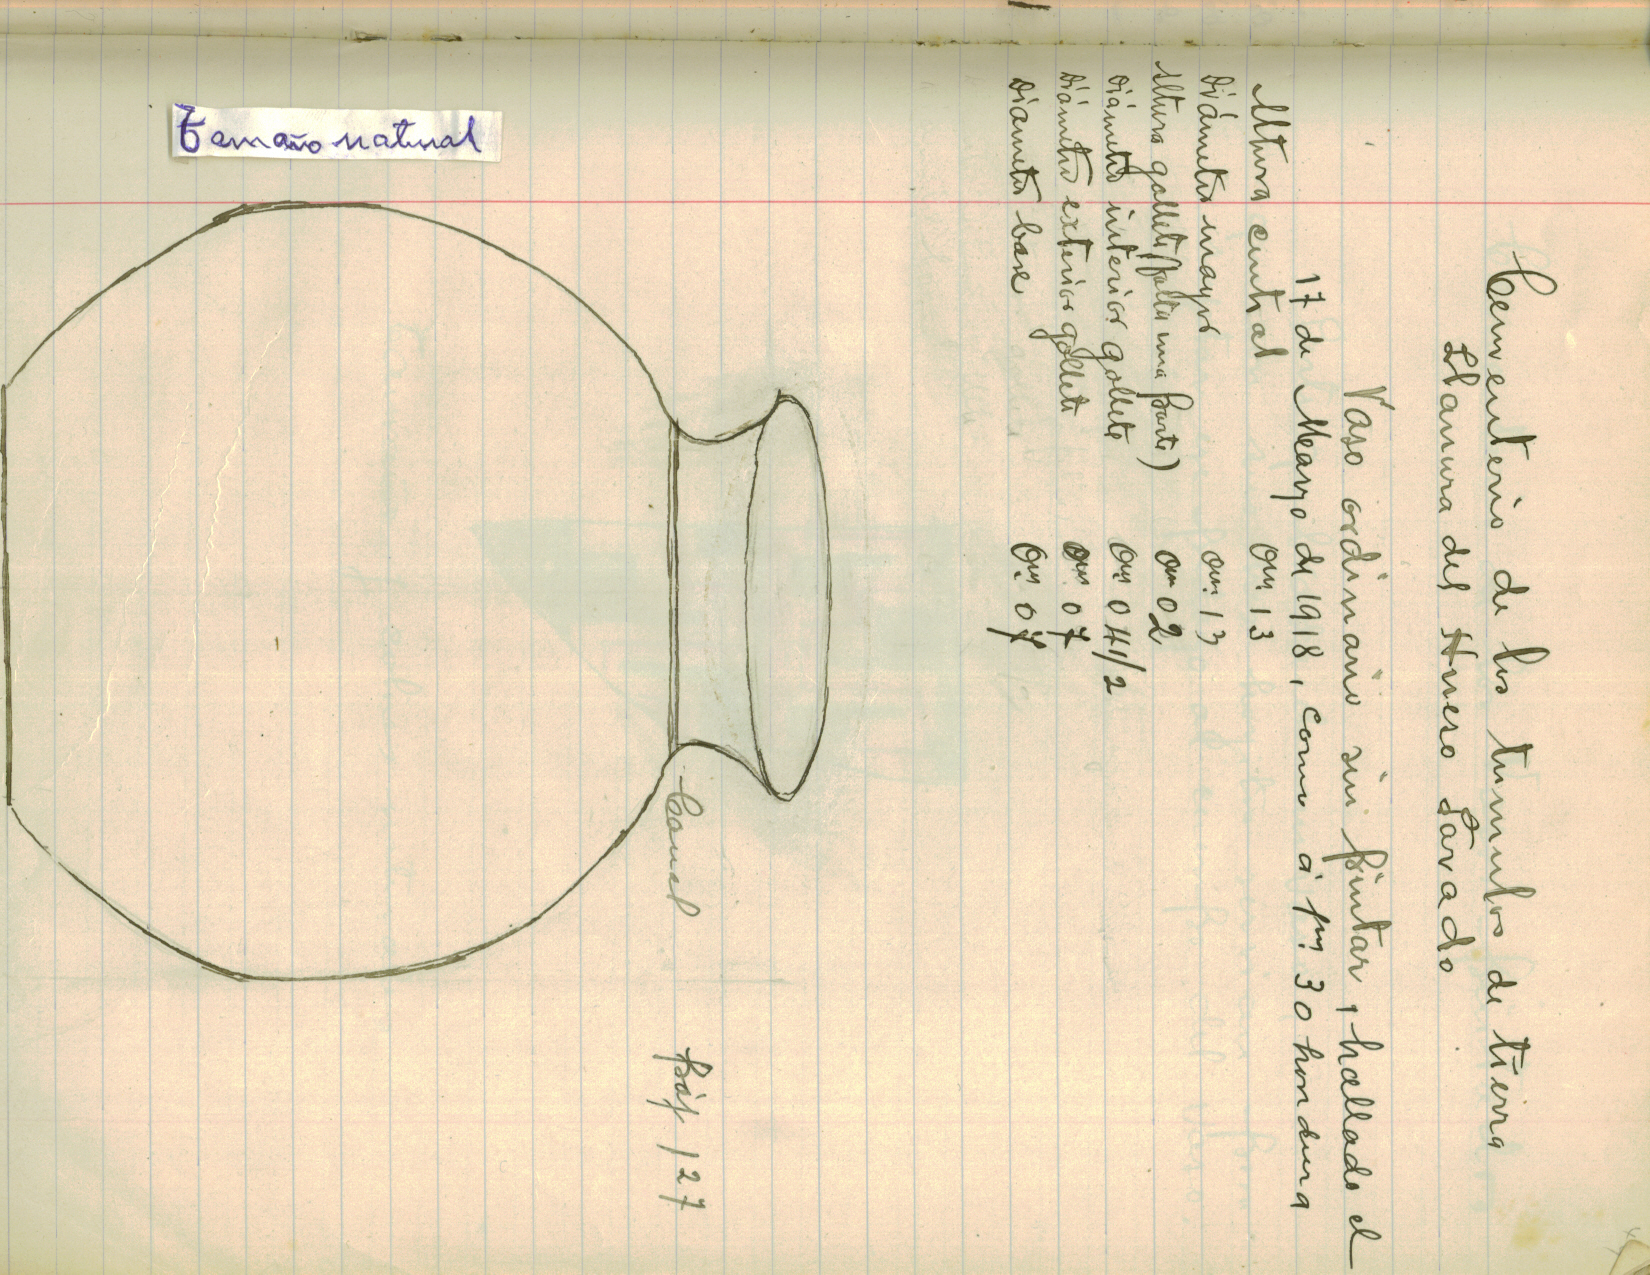 Cementerio de los tumulos de tierra
Llanura del Hueso Lavado
Vaso ordinario sin pintar, hallado el
17 de Marzo de 1918, como á 1m 30 hondura
Altura central 0m 13
Diámetro mayor 0m. 13
Altura gollete (falta una parte) 0m 02
Diámetro interior gollete 0m 04 1/2
Diámetro exterior gollete 0m 07
Diámetro base 0m. 07
Canal pág 127
tamaño natural